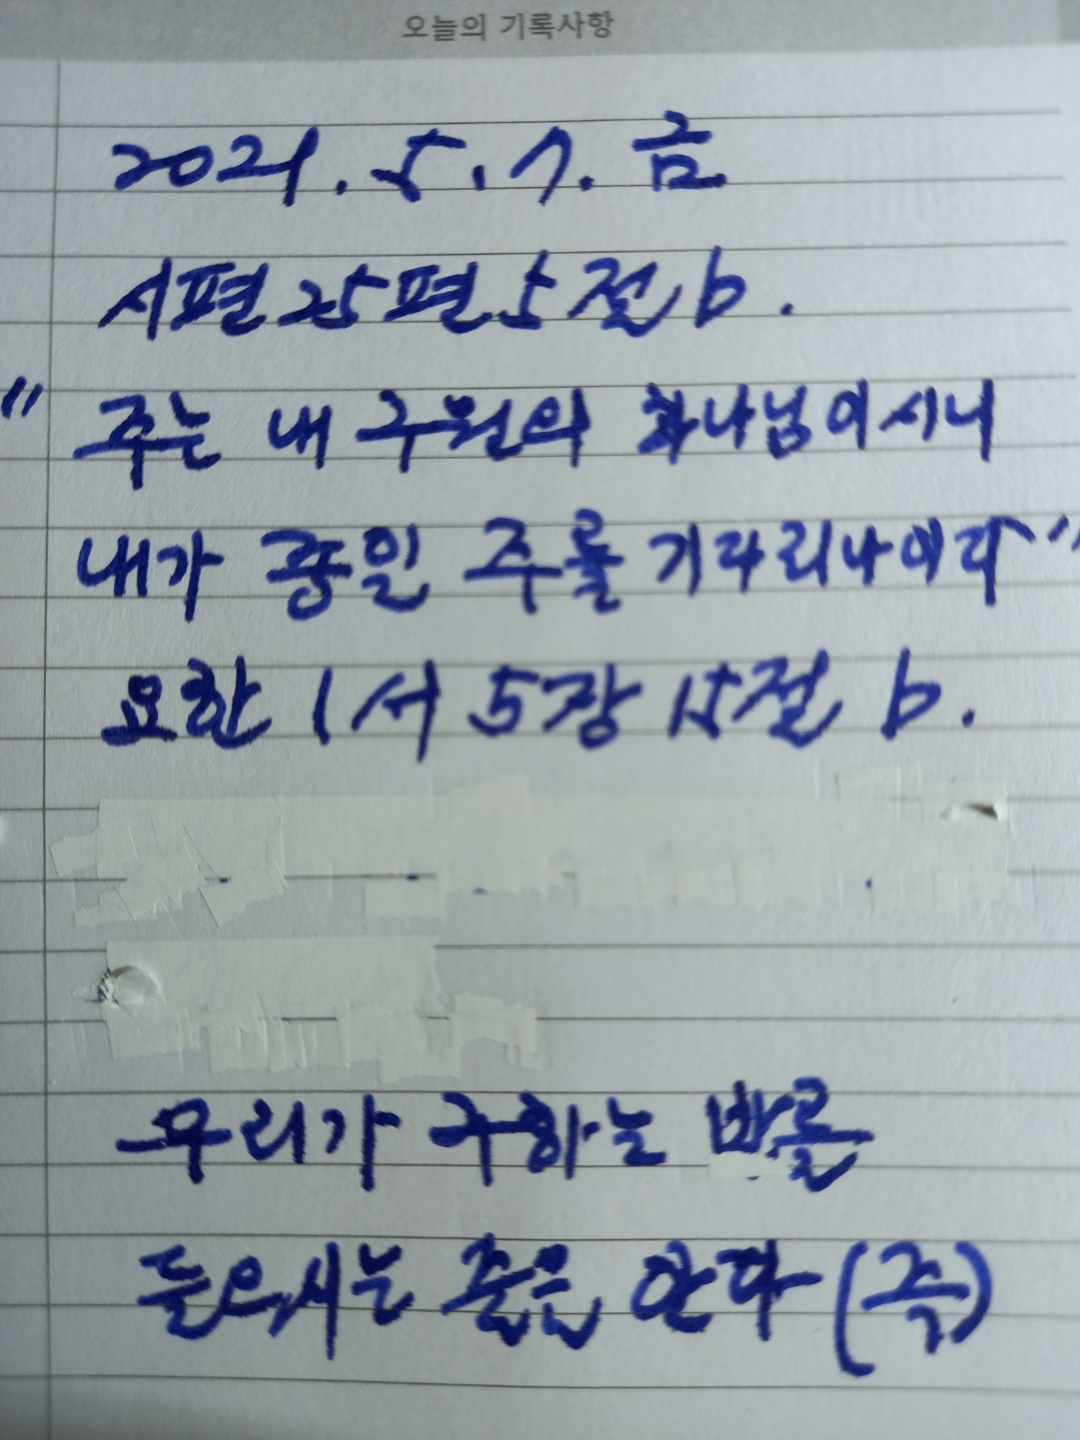 오늘의 기록사항
2021. 5. 7. 금
시편 25편 5절 b.
"주는 내 구원의 하나님이시니
내가 종일 주를 기다리나이다"
요한 1서 5장 15절 b.
우리가 구하는 바를
들으시는 줄은 안다 (즉)